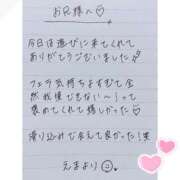 お兄様へ♡
今日は遊びに来てくれて
ありがとうございました♡
フェラ気持ちよすぎて全
然我慢できない〜!って
褒めてくれて嬉しかった♡
滑り込みで会えて良かった!笑
えまより